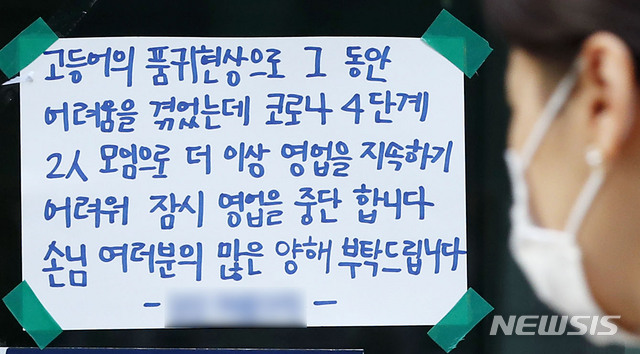 고등어의 품귀현상으로 그 동안
어려움을 겪었는데 코로나 4단계
2人 모임으로 더 이상 영업을 지속하기
어려워 잠시 영업을 중단 합니다
손님 여러분의 많은 양해 부탁드립니다
NEWSIS